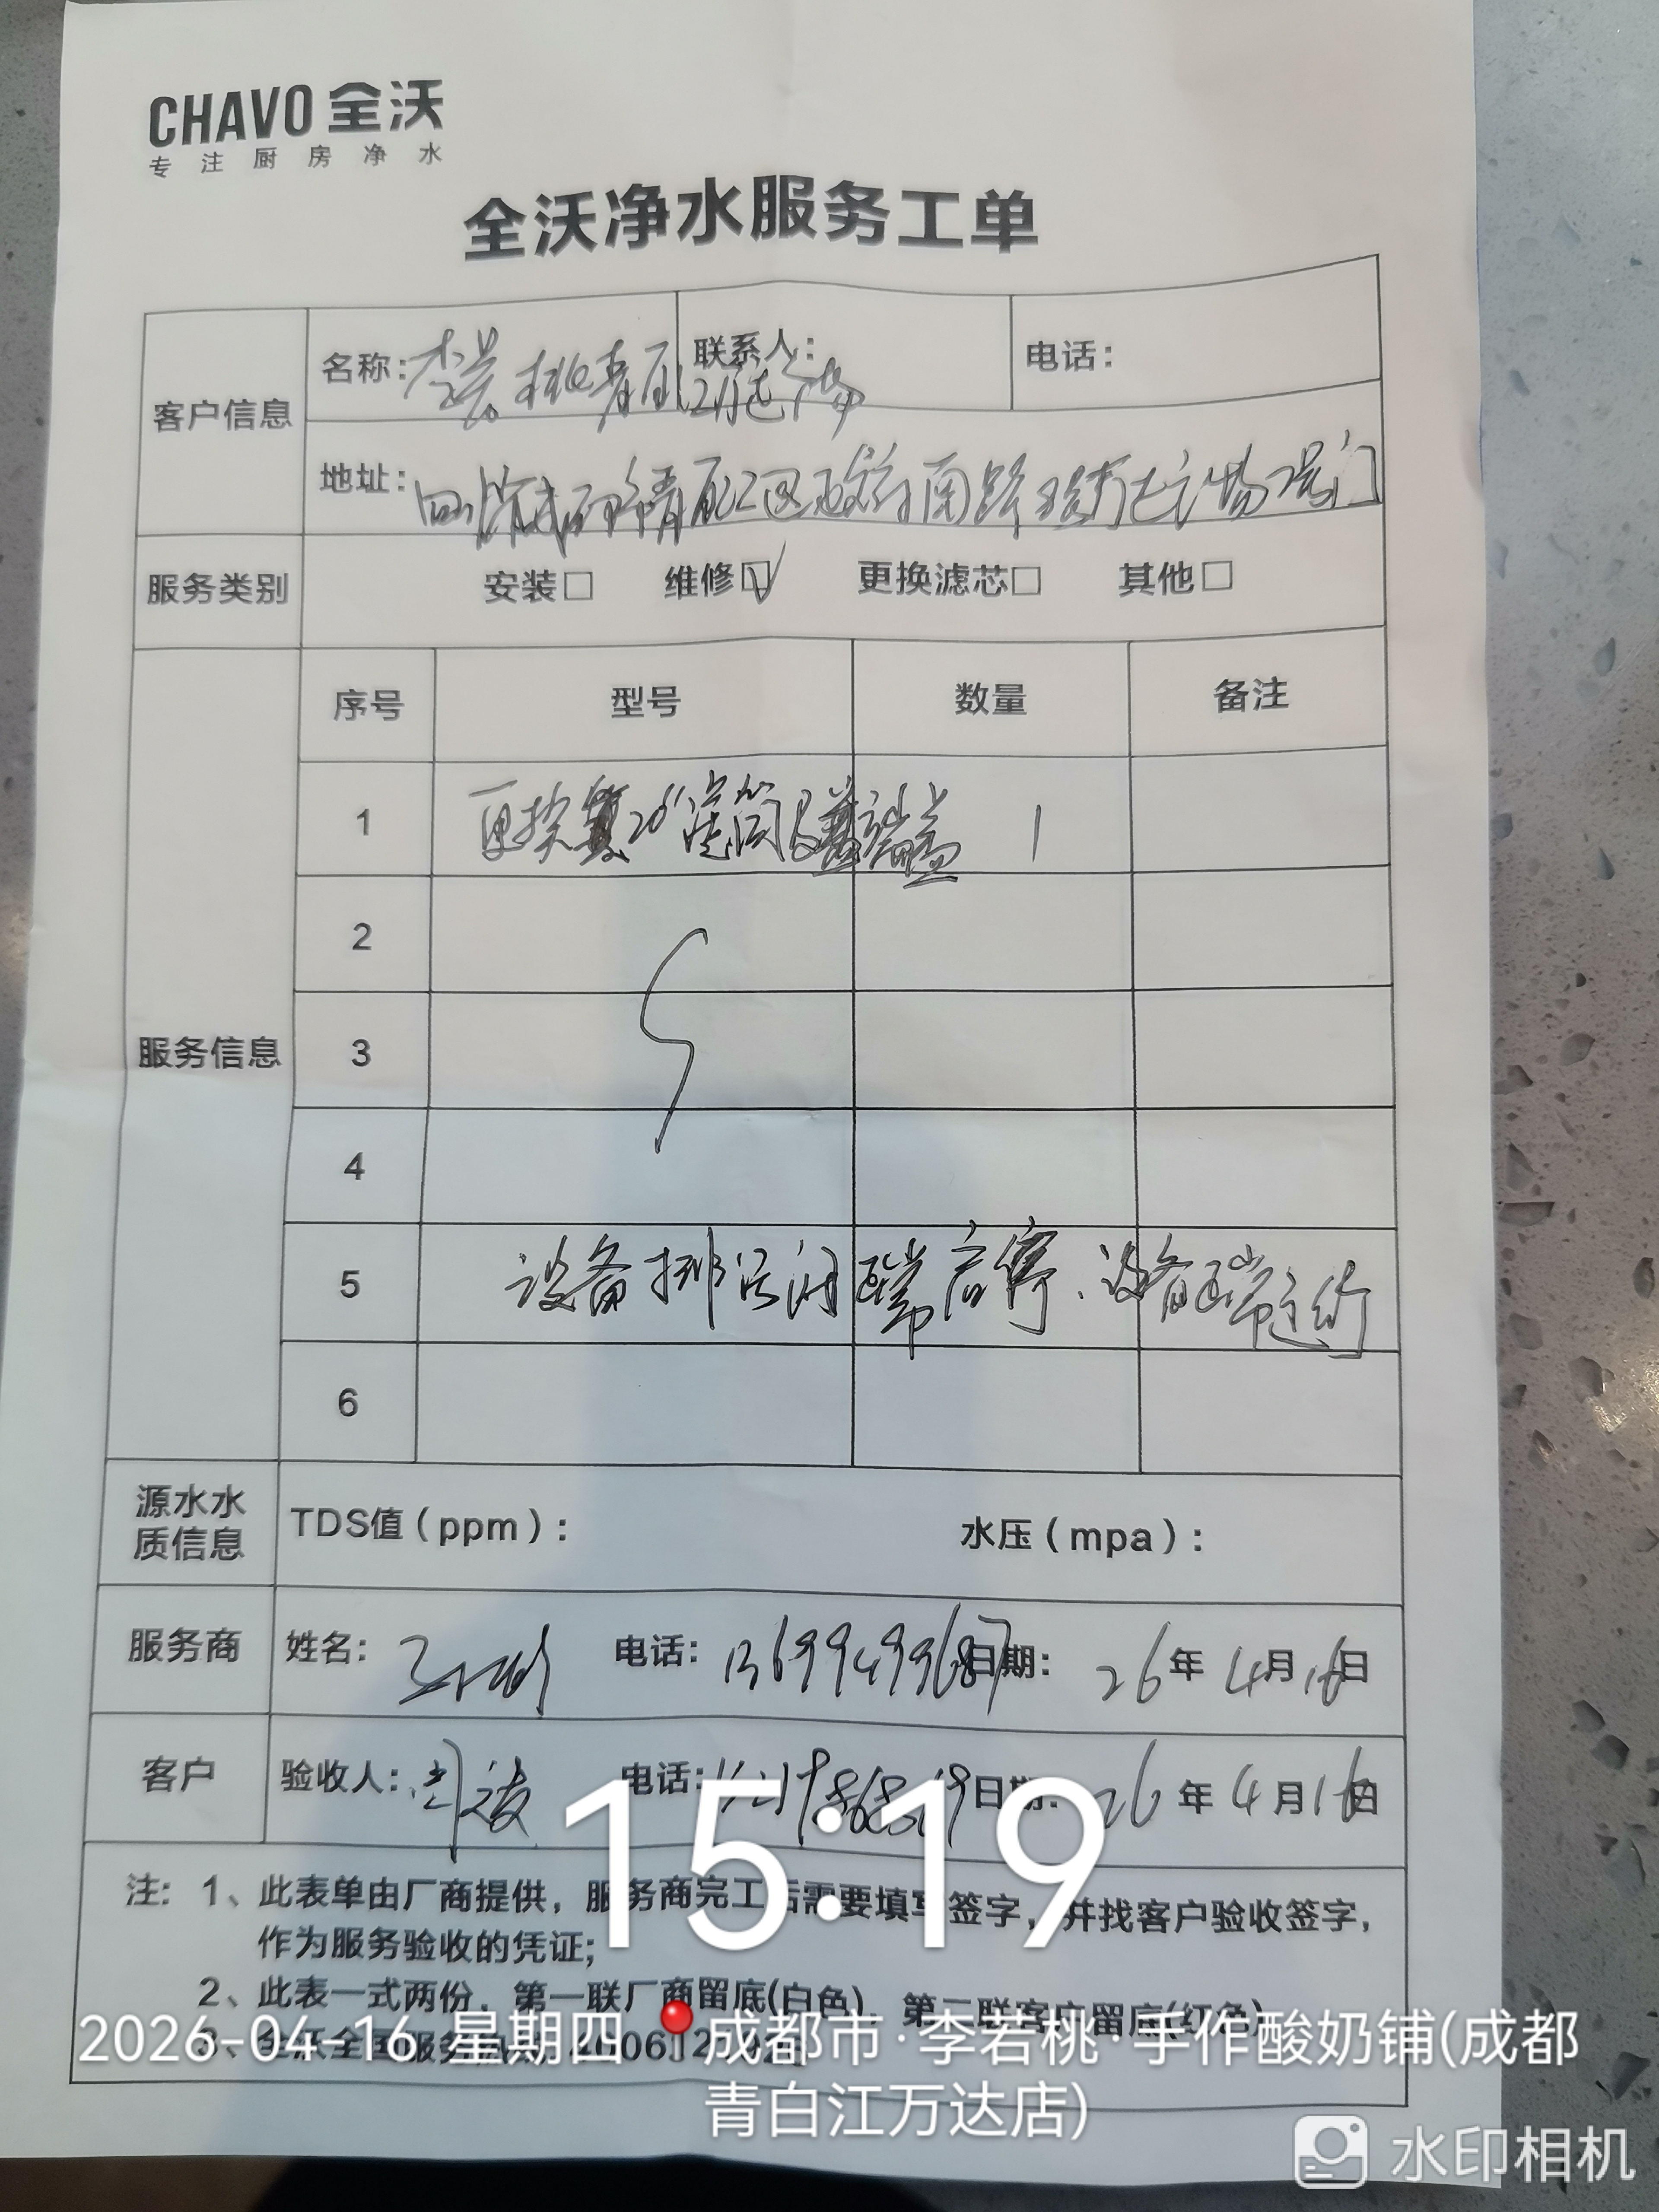 CHAVO 全沃
专注厨房净水
全沃净水服务工单
客户信息
名称:李若桃青白江万达广场
联系人:
电话:
地址:四川省成都市青白江区政府南路 万达广场 门
服务类别 安装□ 维修☑ 更换滤芯□ 其他□
服务信息
序号 型号 数量 备注
1 更换 20" 滤筒及端盖 1
2
3
4
5 设备排污阀 异常,设备正常运行
6
源水水质信息 TDS值(ppm): 水压(mpa):
服务商 姓名: 电话:13699499687 日期: 26年4月16日
客户 验收人: 电话: 日期: 26年4月16日
注: 1、此表单由厂商提供,服务商完工后需要填写签字,并找客户验收签字,
作为服务验收的凭证;
2、此表一式两份,第一联厂商留底(白色),第二联客户留底(红色)
3、全沃全国服务热线
15:19
2026-04-16 星期四 成都市·李若桃·手作酸奶铺(成都
青白江万达店)
水印相机